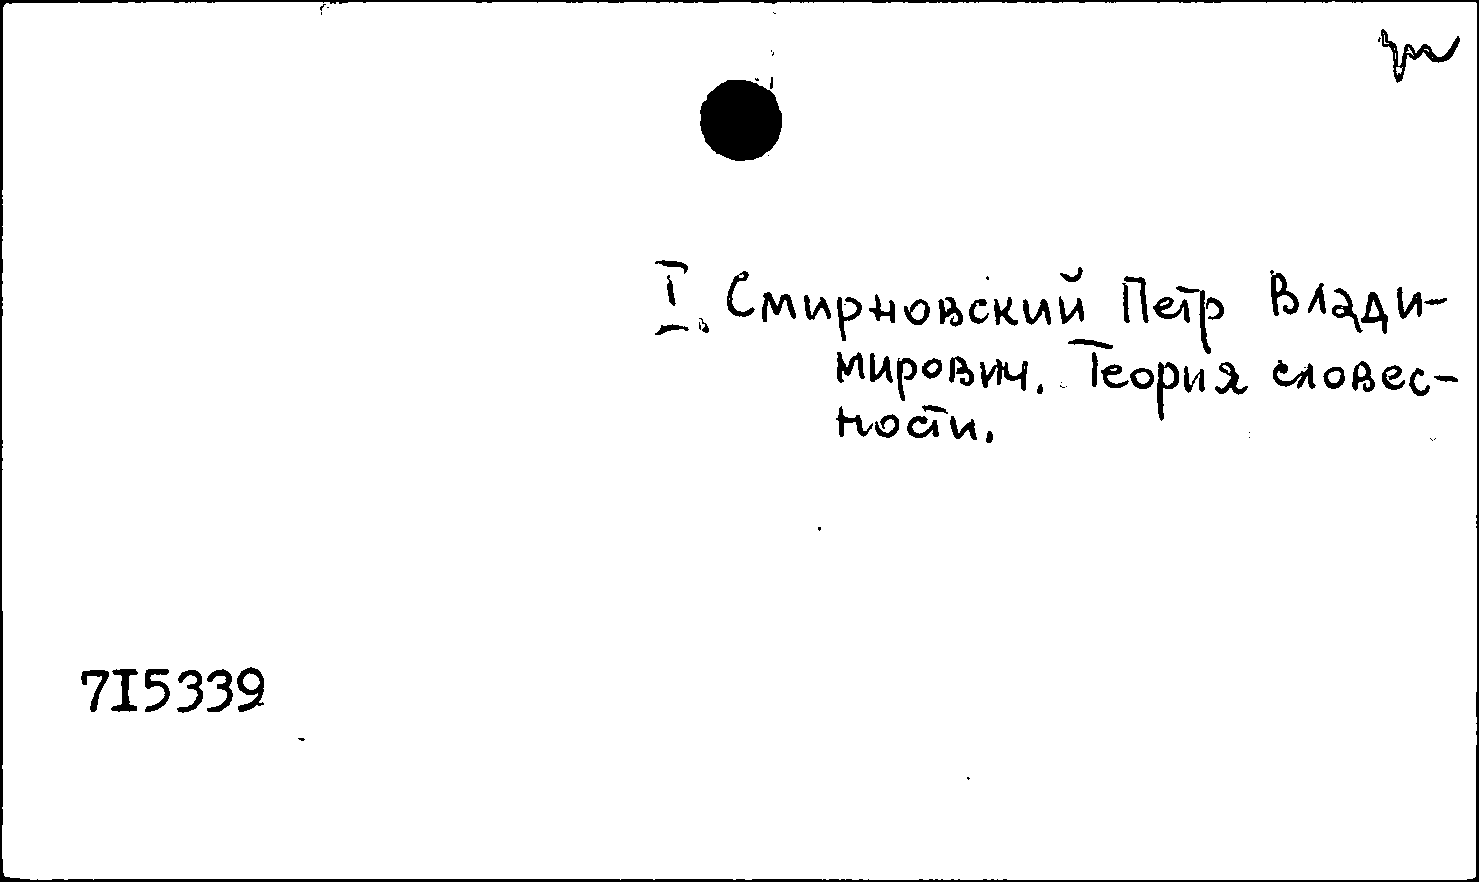 I. Смирновский Петр Влади-
мирович. Теория словес-
ности.
7I5339